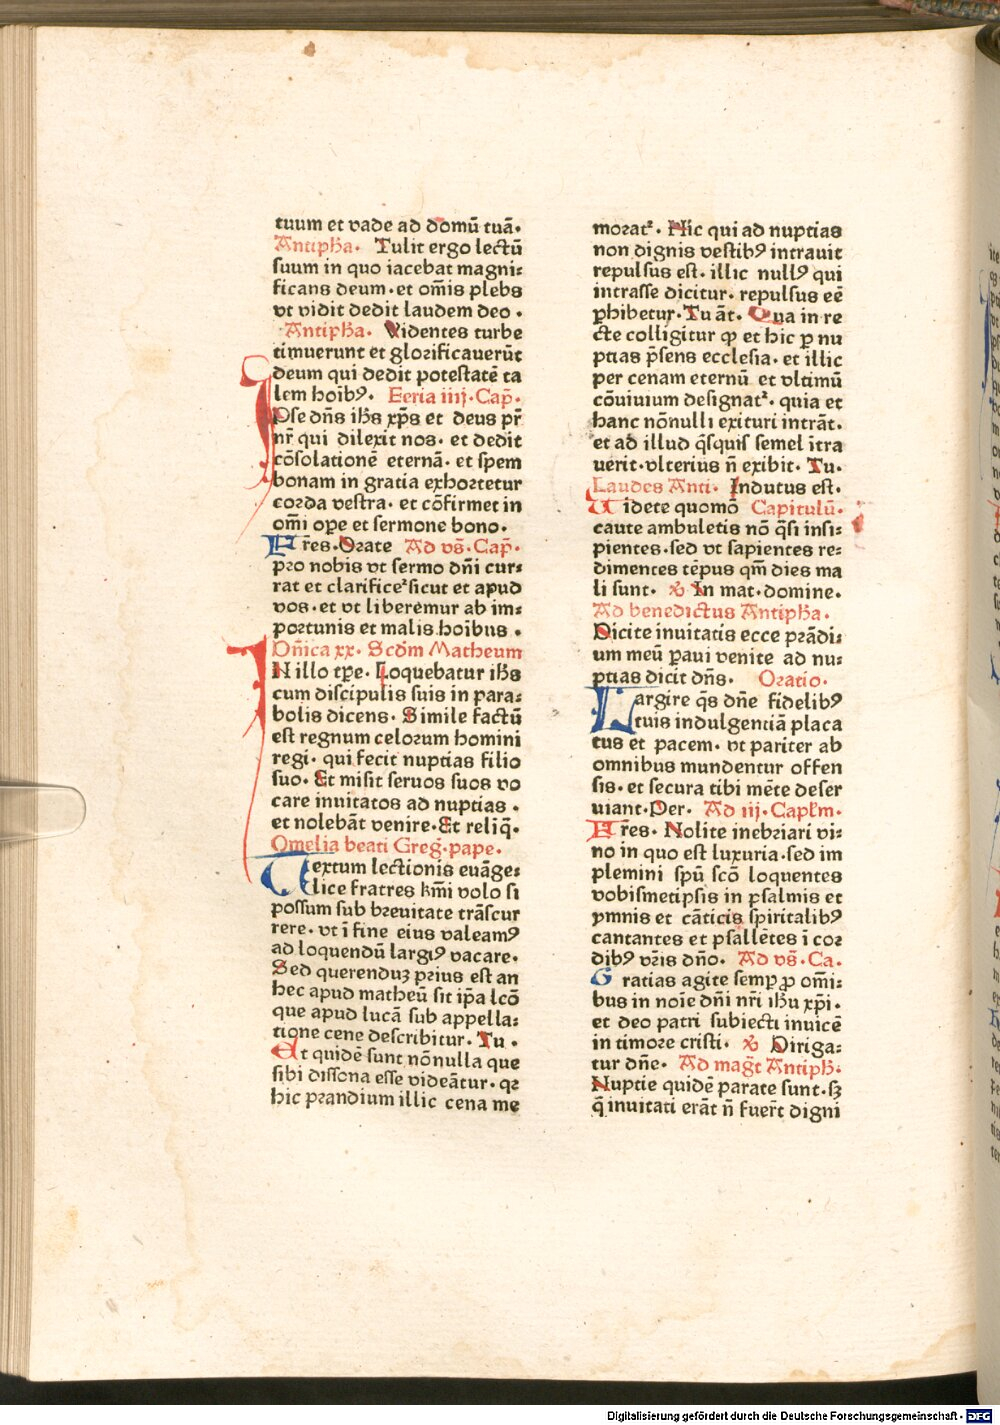 tuum et vade ad domū tuā.
Antipha. Tulit ergo lectū
suum in quo iacebat magni:
ficans deum. et om̄is plebs
vt vidit dedit laudem deo.
Antipha. Videntes turbe
timuerunt et glorificauerūt
deum qui dedit potestatē ta
lem hoībꝰ. Feria iiij. Cap̄.
Ipse dn̄s ihs xp̄s et deus pr̄
nr̄ qui dilexit nos. et dedit
cōsolationē eternā. et spem
bonam in gratia exhortetur
corda vestra. et cōfirmet in
om̄i oꝑe et sermone bono.
Fr̄es. Orate Ad vs̄. Cap̄.
pro nobis vt sermo dn̄i cur:
rat et clarificeᷣ sicut et apud
vos. et vt liberemur ab im:
portunis et malis hoībus.
Dn̄ica xx. Scd̄m Matheum
IN illo tꝑe. Loquebatur ihs
cum discipulis suis in para:
bolis dicens. Simile factū
est regnum celorum homini
regi. qui fecit nuptias filio
suo. Et misit seruos suos vo
care inuitatos ad nuptias.
et nolebāt venire. Et reliq̄.
Omelia beati Greḡ. pape.
Textum lectionis euāge:
lice fratres km̄i volo si
possum sub breuitate trāscur
rere. vt ī fine eius valeamꝰ
ad loquendū largiꝰ vacare.
Sed querenduꝫ prius est an
hec apud matheū sit ip̄a lcō
que apud lucā sub appella:
tione cene describitur. Tu.
Et quidē sunt nōnulla que
sibi dissona esse videātur. qꝛ
hic prandium illic cena me
moratᷣ. Hic qui ad nuptias
non dignis vestibꝰ intrauit
repulsus est. illic nullꝰ qui
intrasse dicitur. repulsus eē
ꝓhibetur. Tu āt. Qua in re
cte colligitur ꝙ et hic ꝑ nu
ptias p̄sens ecclesia. et illic
per cenam eternū et vltimū
cōuiuium designatᷣ. quia et
hanc nōnulli exituri intrāt.
et ad illud q̄squis semel ītra
uerit. vlterius n̄ exibit. Tu.
Laudes Anti. Indutus est.
Uidete quomō Capitulū.
caute ambuletis nō q̄si insi:
pientes. sed vt sapientes re:
dimentes tēpus qm̄ dies ma
li sunt. ℣ In mat. domine.
Ad benedictus Antipha.
Dicite inuitatis ecce prādi:
um meū ꝑaui venite ad nu:
ptias dicit dn̄s. Oratio.
Largire q̄s dn̄e fidelibꝰ
tuis indulgentiā placa
tus et pacem. vt pariter ab
omnibus mundentur offen
sis. et secura tibi mēte deser
uiant. Per. Ad iij. Capl̄m.
Fr̄es. Nolite inebriari vi:
no in quo est luxuria. sed im
plemini sp̄u scō loquentes
vobismetipsis in psalmis et
ymnis et cāticis spiritalibꝰ
cantantes et psallētes ī cor
dibꝰ vr̄is dn̄o. Ad vs̄. Ca.
Gratias agite semꝑ ꝓ om̄i:
bus in noīe dn̄i nr̄i ihu xp̄i.
et deo patri subiecti inuicē
in timore cristi. ℣ Diriga:
tur dn̄e. Ad maḡt Antiph.
Nuptie quidē parate sunt. sꝫ
q̄ inuitati erāt n̄ fuer̄t digni
Digitalisierung gefördert durch die Deutsche Forschungsgemeinschaft - DFG